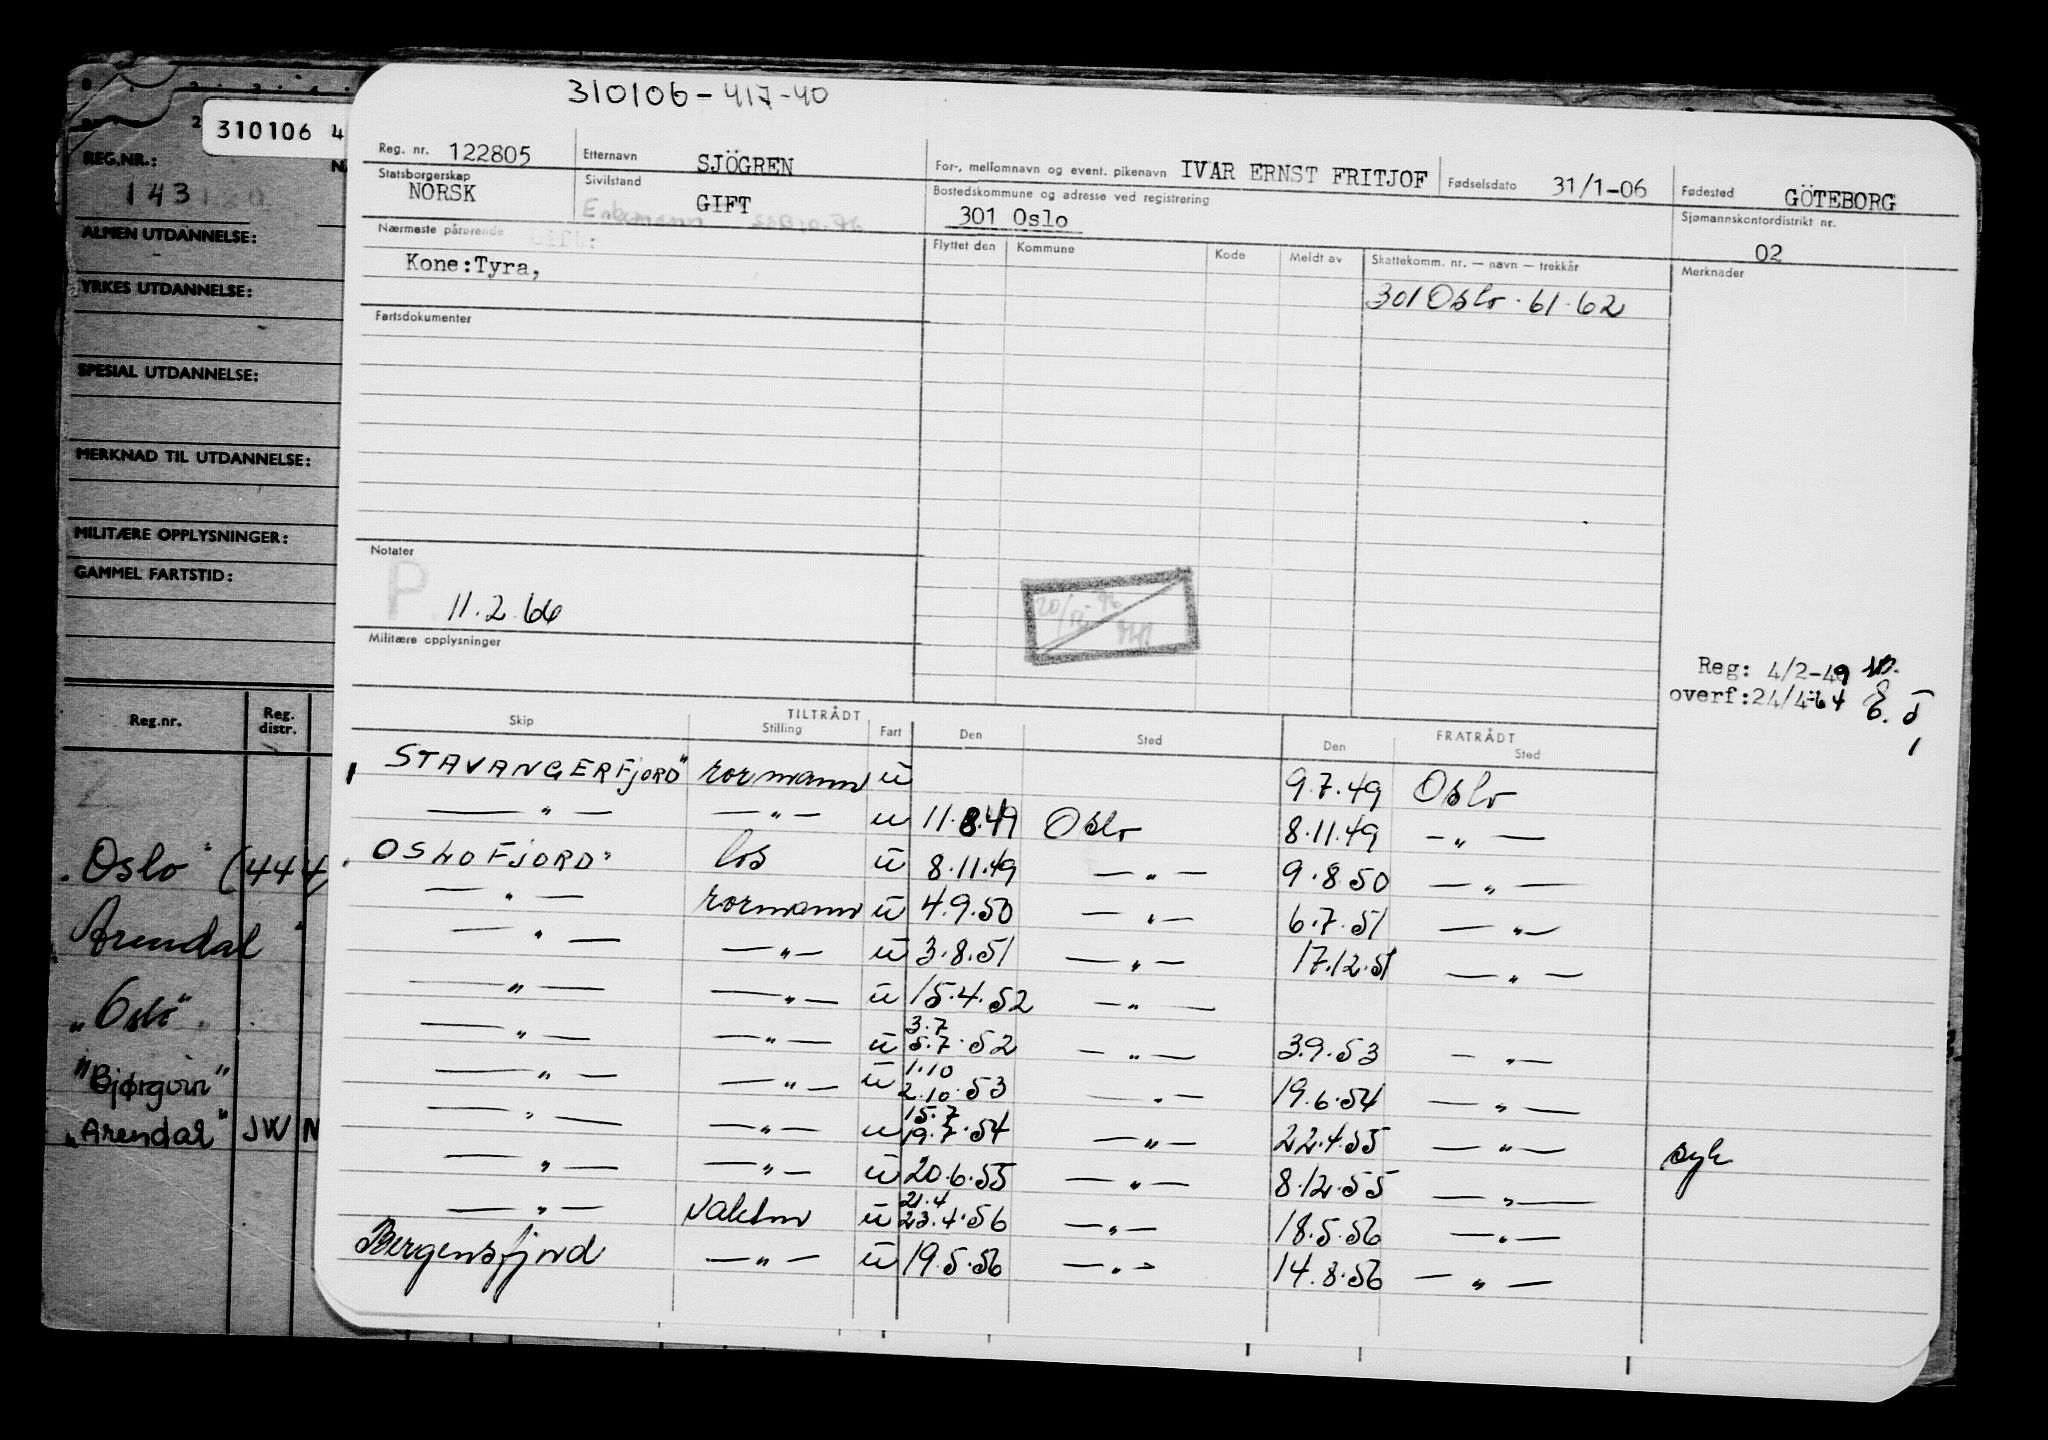 310106-417-40
310106 4
REG.NR.:
143
ALMEN UTDANNELSE:
YRKES UTDANNELSE:
SPESIAL UTDANNELSE:
MERKNAD TIL UTDANNELSE:
MILITÆRE OPPLYSNINGER:
GAMMEL FARTSTID:
Reg.nr. Reg. distr.
Oslo" (444
Arendal"
"Oslo"
"Bjørgvin"
"Arendal" JW N
Reg. nr. 122805 Etternavn SJÖGREN For-, mellomnavn og event. pikenavn IVAR ERNST FRITJOF Fødselsdato 31/1-06 Fødested GÖTEBORG
Statsborgerskap NORSK Sivilstand GIFT Bostedskommune og adresse ved registrering 301 Oslo Sjømannskontordistrikt nr. 02
Nærmeste pårørende Flyttet den Kommune Kode Meldt av Skattekomm. nr. — navn — trekkår Merknader
Kone:Tyra,
301 Oslo · 61 · 62
Fartsdokumenter
Notater
P.
11.2.66
Militære opplysninger
Reg: 4/2-49
overf:24/4-64
TILTRÅDT FRATRÅDT
Skip Stilling Fart Den Sted Den Sted
STAVANGERFJORD" rormann u 9.7.49 Oslo
— " — — " — u 11.8.49 Oslo 8.11.49 — " —
OSLOFJORD" los u 8.11.49 — " — 9.8.50 — " —
— " — rormann u 4.9.50 — " — 6.7.51 — " —
— " — — " — u 3.8.51 — " — 17.12.51 — " —
— " — — " — u 15.4.52 — " —
— " — — " — u 3.7 5.7.52 — " — 3.9.53 — " —
— " — — " — u 1.10 2.10.53 — " — 19.6.54 — " —
— " — — " — u 15.7 19.7.54 — " — 22.4.55 — " — syk
— " — — " — u 20.6.55 — " — 8.12.55 — " —
— " — Vaktm u 21.4 23.4.56 — " — 18.5.56 — " —
Bergensfjord — " — u 19.5.56 — " — 14.8.56 — " —